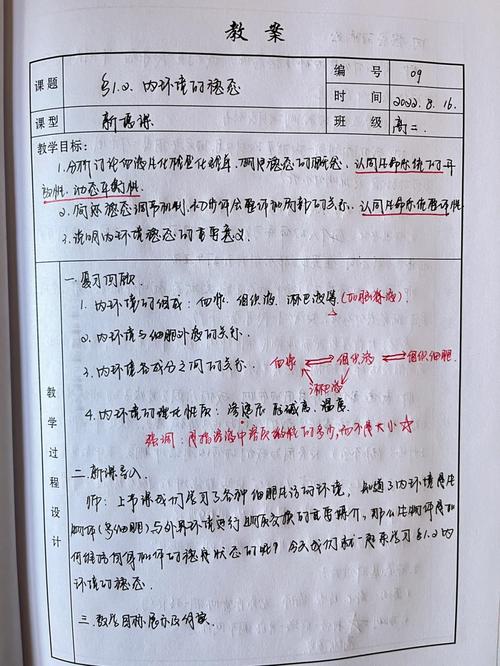 教案
课题 §1.2. 内环境的稳态 编号 09
时间 2022.8.16.
课型 新授课 班级 高二.
教学目标:
1.分析讨论血液生化检查化验单, 稳态的概念, 认同生命系统的开
放性, 动态平衡性.
2.简述稳态调节机制, 初步体会整体和局部的关系. 认同生命系统整体性
3.说明内环境稳态的重要意义.
教学过程设计
一.复习回顾
1.内环境的组成: 血浆. 组织液. 淋巴液等(加脑脊液).
2.内环境与细胞外液的关系.
3.内环境各成分之间的关系. 血浆 组织液 组织细胞
淋巴液
4.内环境的理化性质: 渗透压 酸碱度. 温度
强调: 是指溶液中溶质微粒的多少, 而不是大小☆
二.新课导入
师: 上节课我们学习了各种细胞生活的环境, 知道了内环境是生
物体(多细胞)与外界环境进行物质交换的重要媒介, 那么生物体是如
何维持内环境的稳定状态的呢? 今天我们就一起来学习§1.2内
环境的稳态.
三.教学目标展示及